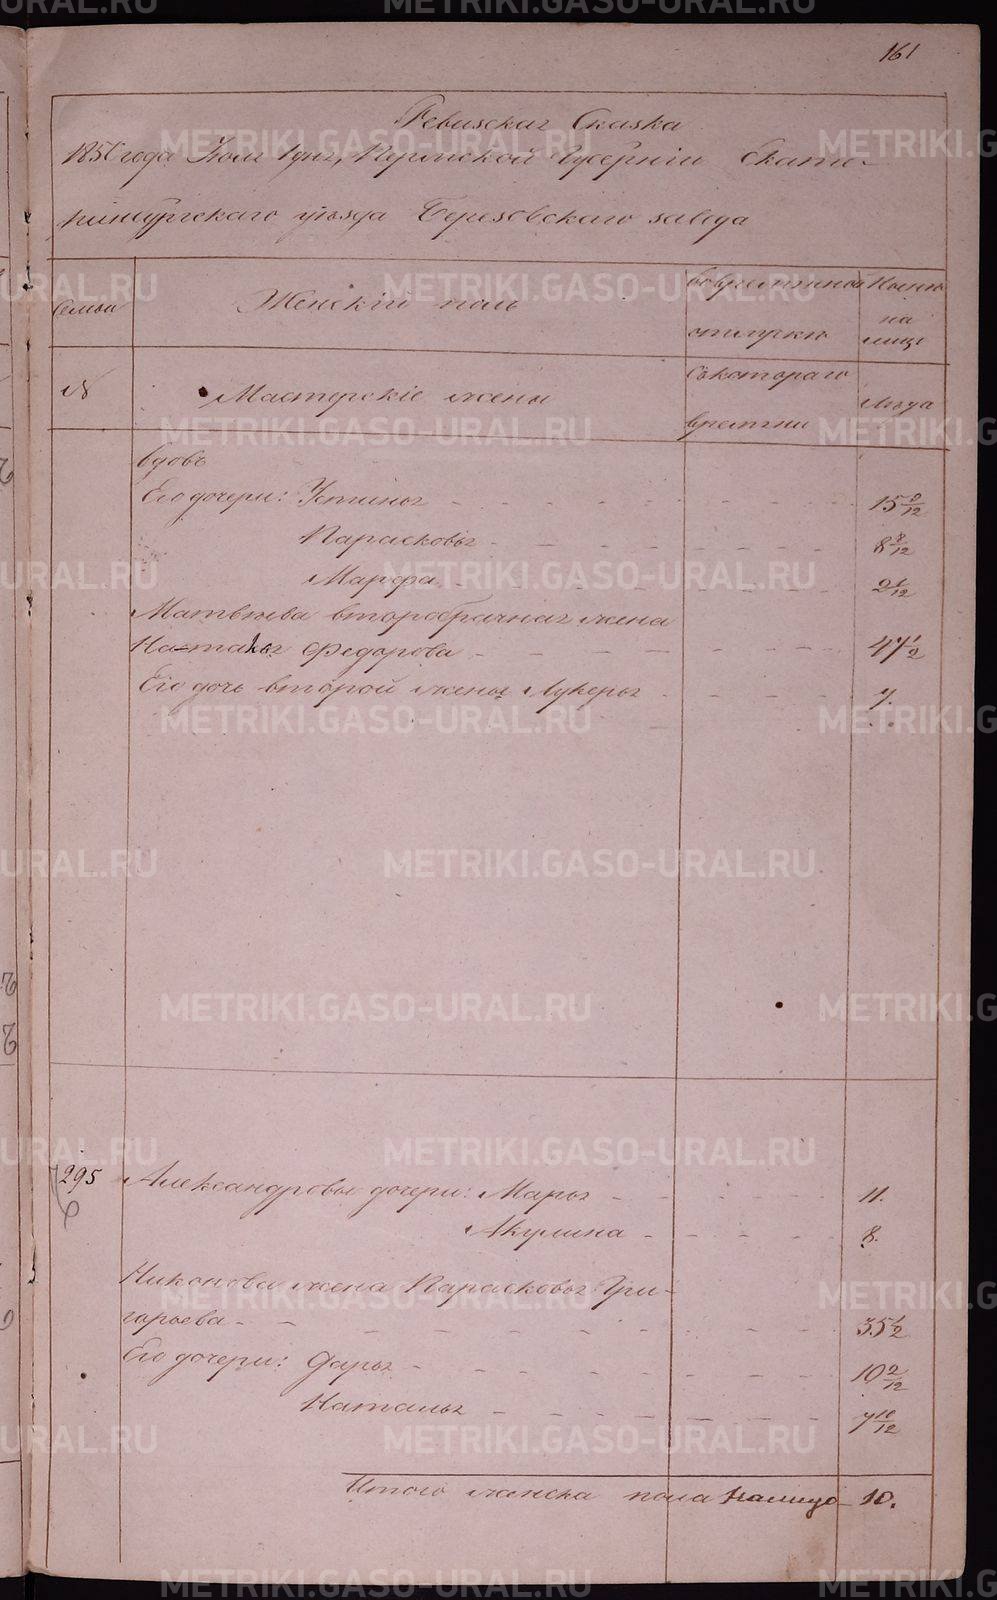 161
Ревизская Сказка
1850 года Июля 1 дня, Пермской Губерніи Екате-
ринбургскаго уѣзда Березовскаго завода
Семьи
Женскій полъ
Во временной
отлучкѣ
Нынѣ
на
лицо
№
Мастерскіе жены
Съ котораго
времени
Лѣта
вдовъ
Его дочери: Устинья 15 9/12
Парасковья 8 8/12
Марфа
Матвѣева второбрачная жена
Наталья Федорова 47 1/2
Его дочь второй жены Лукерья 7.
295
Александровы дочери: Марья 11.
Акулина 8.
Никонова жена Парасковья Гри-
горьева 35 1/2
Его дочери: Дарья 10 2/12
Наталья 7 10/12
Итого женска пола налицо 10.
METRIKI.GASO-URAL.RU